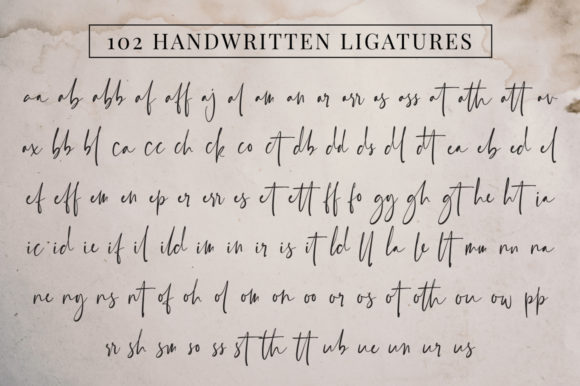 102 HANDWRITTEN LIGATURES
aa ab abb af aff aj al am an ar arr as ass at ath att av
ax bb bl ca cc ch ck co ct db dd ds dl dt ea eb ed el
ef eff em en ep er err es et ett ff fo gg gh gt he ht ia
ic id ie if il ild im in ir is it ld ll la lo lt mm nn na
ne ng ns nt of oh ol om on oo or os ot oth ou ow pp
rr sh sm so ss st th tt ub ue un ur us